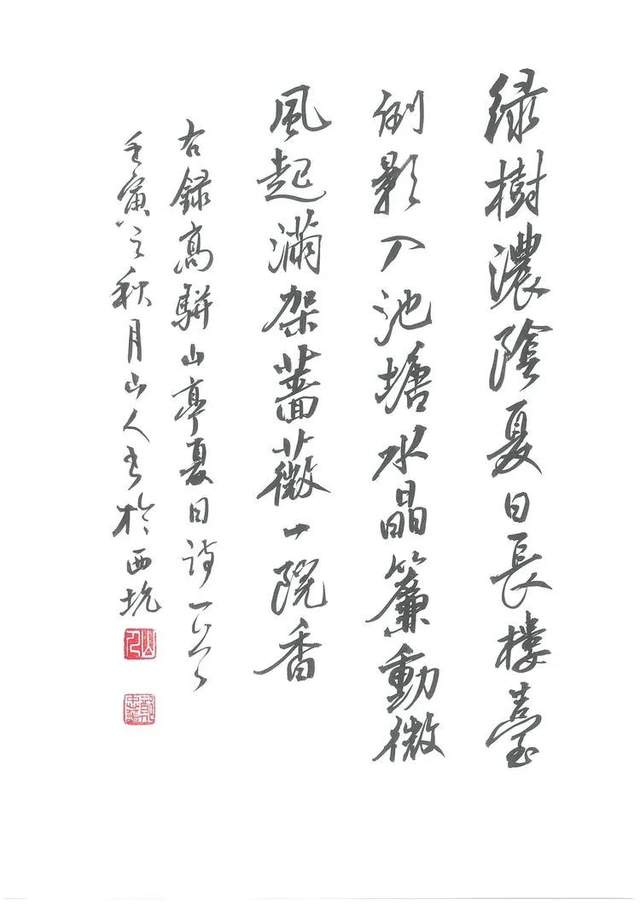 綠樹濃陰夏日長樓臺
倒影入池塘水晶簾動微
風起滿架薔薇一院香
右錄高駢山亭夏日詩一首
壬寅之秋月山人書於西坑
山人